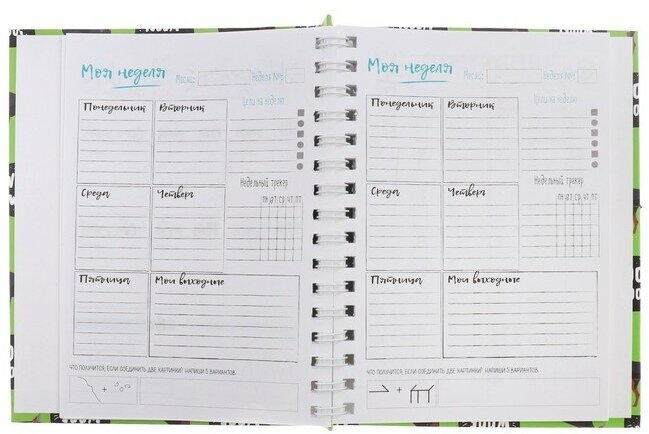 Моя неделя
Месяц:
Неделя №:
Понедельник
Вторник
Цели на неделю
Среда
Четверг
Недельный трекер
ПН ВТ СР ЧТ ПТ
Пятница
Мои выходные
ЧТО ПОЛУЧИТСЯ, ЕСЛИ СОЕДИНИТЬ ДВЕ КАРТИНКИ? НАПИШИ 5 ВАРИАНТОВ.
+
Моя неделя
Месяц:
Неделя №:
Понедельник
Вторник
Цели на неделю
Среда
Четверг
Недельный трекер
ПН ВТ СР ЧТ ПТ
Пятница
Мои выходные
ЧТО ПОЛУЧИТСЯ, ЕСЛИ СОЕДИНИТЬ ДВЕ КАРТИНКИ? НАПИШИ 5 ВАРИАНТОВ.
+